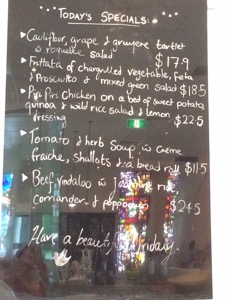 TODAY'S SPECIALS:
Cauliflower, grape & gruyere tartlet
w roquette salad $17.9
Frittata of chargrilled vegetable, feta
& Prosciutto & mixed green salad $18.5
Piri Piri Chicken on a bed of sweet potato,
quinoa & wild rice salad & lemon
dressing $22.5
Tomato & herb Soup w crème
fraiche, shallots & a bread roll $11.5
Beef Vindaloo w jasmine rice,
coriander & pappadum $24.5
Have a beautiful Friday